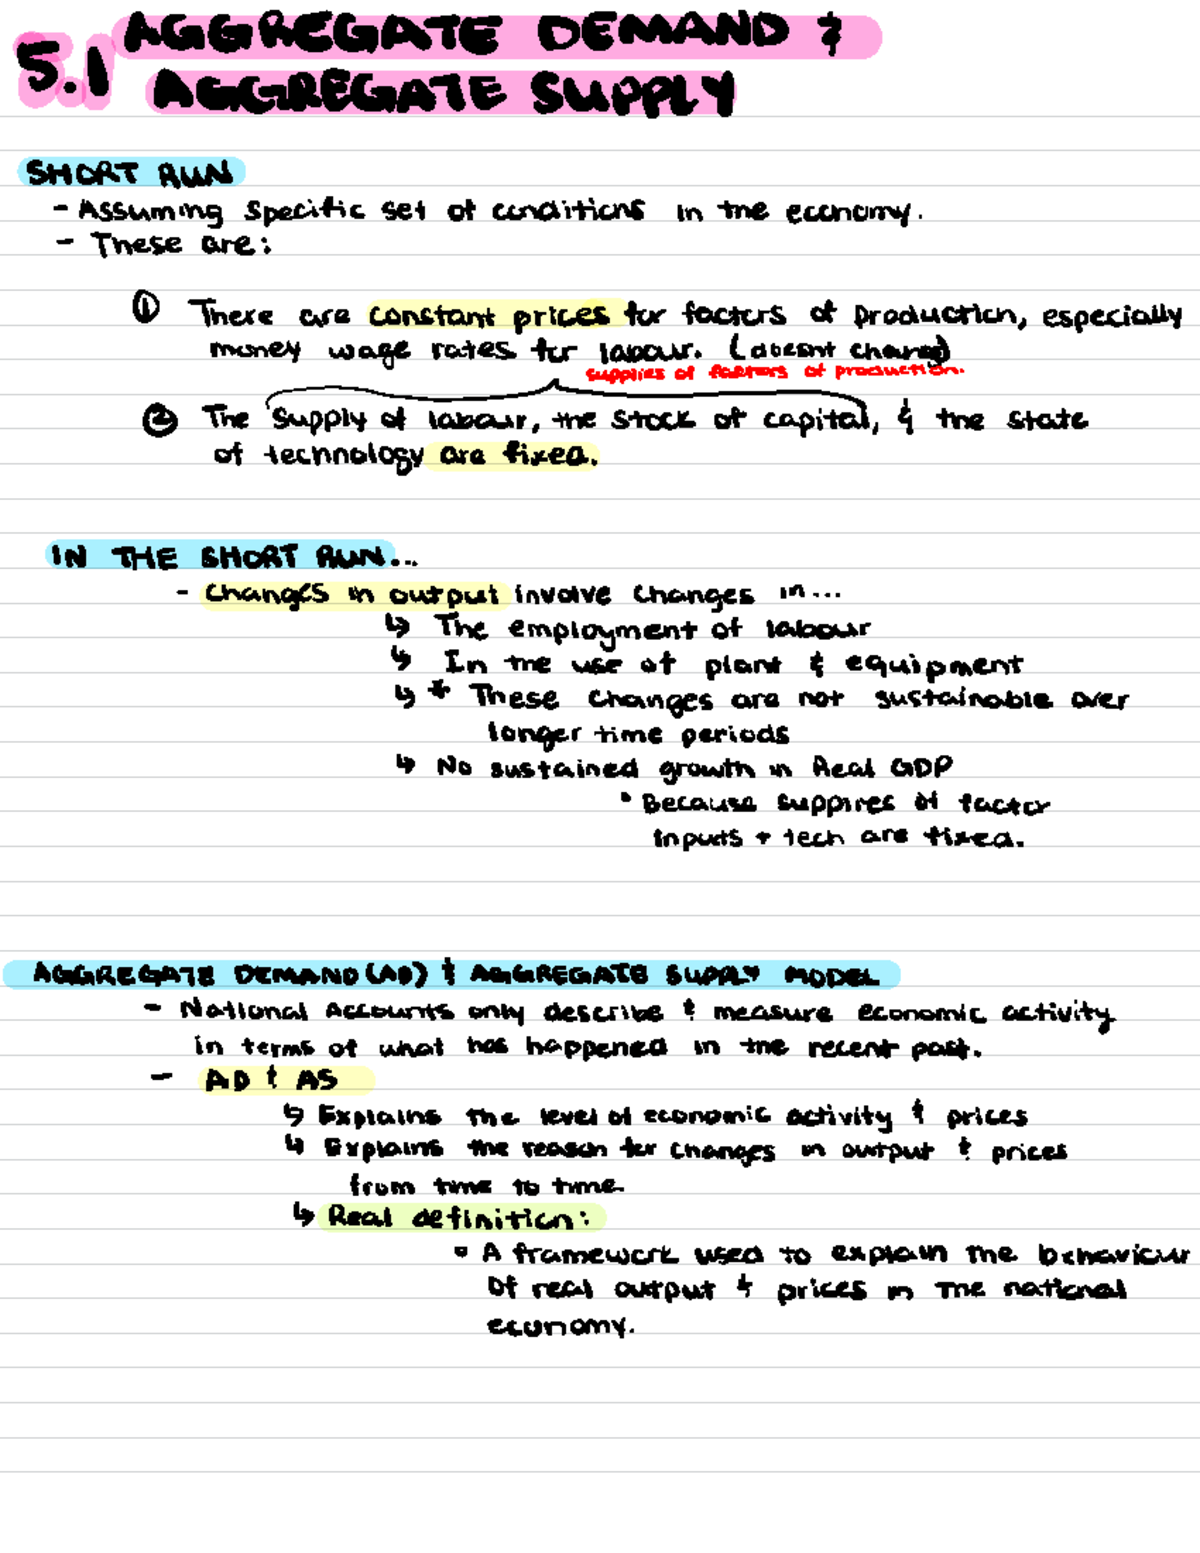 5.1 AGGREGATE DEMAND &
AGGREGATE SUPPLY
SHORT RUN
- Assuming specific set of conditions in the economy.
- These are:
① There are constant prices for factors of production, especially
money wage rates for labour. (doesnt change)
supplies of factors of production.
② The supply of labour, the stock of capital, & the state
of technology are fixed.
IN THE SHORT RUN...
- Changes in output involve changes in...
↳ The employment of labour
↳ In the use of plant & equipment
↳ * These changes are not sustainable over
longer time periods
↳ No sustained growth in Real GDP
• Because supplies of factor
inputs + tech are fixed.
AGGREGATE DEMAND (AD) & AGGREGATE SUPPLY MODEL
- National Accounts only describe & measure economic activity
in terms of what has happened in the recent past.
- AD & AS
↳ Explains the level of economic activity & prices
↳ Explains the reason for changes in output & prices
from time to time
↳ Real definition:
• A framework used to explain the behaviour
of real output & prices in the national
economy.